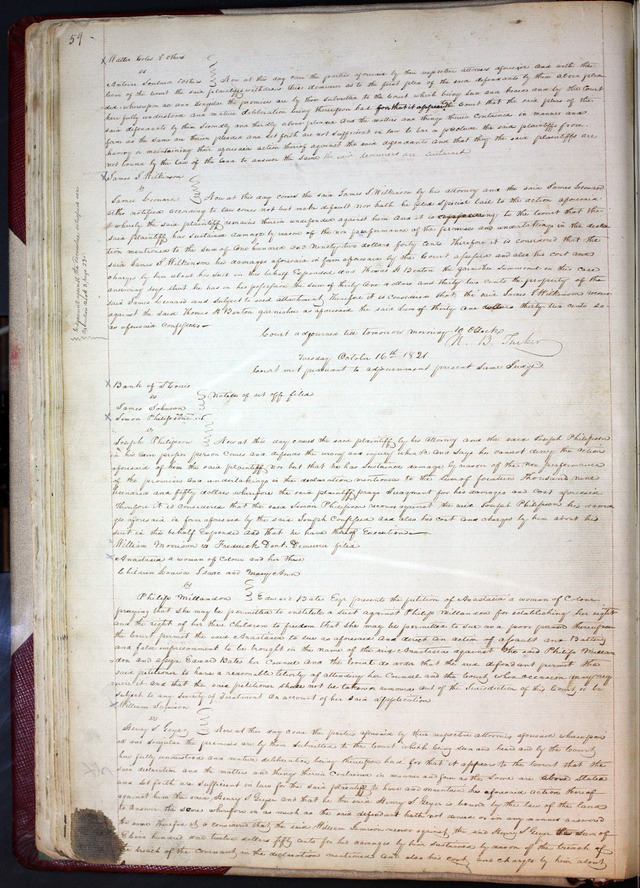 54
Walter Coles & Others
vs
Antoine Soulard & others Now at this day come the parties aforesaid by their respective attornies aforesaid and with the
leave of the Court the said plaintiffs withdraws their demurrer as to the first plea of the said defendants by them above plea
ded whereupon all and singular the premises are by them submitted to the Court which being seen and heard and by the Court
here fully understood and mature deliberation being thereupon had for that it appears to the Court that the said pleas of the
said defendants by them secondly and thirdly above pleaded and the matters and things therein contained in manner and
form as the same are therein pleaded and set forth are not sufficient in law to bar or preclude the said plaintiffs from
having or maintaining their aforesaid action thereof against the said defendants and that they the said plaintiffs are
not bound by the law of the land to answer the same the said demurrers are sustained
James S Wilkinson
vs
James Leonard Now at this day comes the said James S Wilkinson by his attorney and the said James Leonard
altho notified according to law comes not but makes default nor hath he filed special bail to the action aforesaid
whereby the said plaintiff remains therein undefended against him And it is appearing to the Court that the
said plaintiff has sustained damage by reason of the non performance of the promises and undertakings in the decla
ration mentioned to the sum of One hundred and Ninety two dollars forty cents Therefore it is considered that the
said James S Wilkinson his damages aforesaid in form aforesaid by the Court assessed and also his cost and
charges by him about his suit in this behalf Expended And Thomas H Benton the garnishee summoned in this case
answering says that he has in his possession the sum of thirty one dollars and thirty six cents the property of the
said James Leonard and subject to said attachment Therefore it is considered that the said James S Wilkinson recover
against the said Thomas H Benton garnishee as aforesaid the said sum of thirty one dollars thirty six cents so
as aforesaid confessed
Court adjourned till tomorrow morning 10 OClock
N. B. Tucker
Tuesday October 16th 1821
Court met pursuant to adjournment present same Judge
Bank of St Louis
vs Notice of set off filed
James Johnson
Simon Philipson
vs
Joseph Philipson Now at this day comes the said plaintiff by his attorney and the said Joseph Philipson
in his own proper person comes and defends the wrong and injury when &c And says he cannot deny the action
aforesaid of him the said plaintiff nor but that he has sustained damage by reason of the non performance
of the promises and undertakings in the declaration mentioned to the sum of fourteen thousand nine
hundred and fifty dollars wherefore the said plaintiff prays Judgment for his damages and cost aforesaid
Therefore it is considered that the said Simon Philipson recover against the said Joseph Philipson his dama
ges aforesaid in form aforesaid by the said Joseph Confessed and also his cost and charges by him about his
suit in this behalf Expended And that he have thereof Execution
William Morrison vs Frederick Dent. Demurrer filed
Anastasia a woman of Colour and her three
Children Louisa Isaac and Mary Ann
vs
Philip Millandon Edward Bates Esqr presents the petition of Anastasia a woman of Colour
praying that she may be permitted to institute a suit against Philip Millandon for establishing her right
and the right of her three Children to freedom that she may be permitted to sue as a poor person thereupon
the Court permit the said Anastasia to sue as aforesaid And direct an action of assault and Battery
and false imprisonment to be brought in the name of the said Anastasia against the said Philip Millan
don and assign Edward Bates her Counsel And the Court do order that the said defendant permit the
said petitioner to have a reasonable liberty of attending her Counsel and the Court when occasion may req
uire it and that the said petitioner shall not be taken or removed out of the Jurisdiction of this Court or be
subject to any severity of treatment on account of her said application
William Samison
vs
Henry S Geyer Now at this day come the parties aforesaid by their respective attornies aforesaid whereupon
all and singular the premises are by them submitted to the Court which being seen and heard and by the Court
here fully understood and mature deliberation being thereupon had for that it appears to the Court that the
said declaration and the matters and things therein Contained in manner and form as the same are above stated
and set forth are sufficient in law for the said plaintiff to have and maintain his aforesaid action thereof
against him the said Henry S Geyer and that he the said Henry S Geyer is bound by the law of the land
to answer the same wherefore in as much as the said defendant hath not denied or in any manner answered
the same therefore it is considered that the said William recover against the said Henry S Geyer the sum of
hundred and twelve dollars fifty cents for his damages by him sustained by reason of the breach of
the breach of the Covenant in the declaration mentioned and also his cost and charges by him about